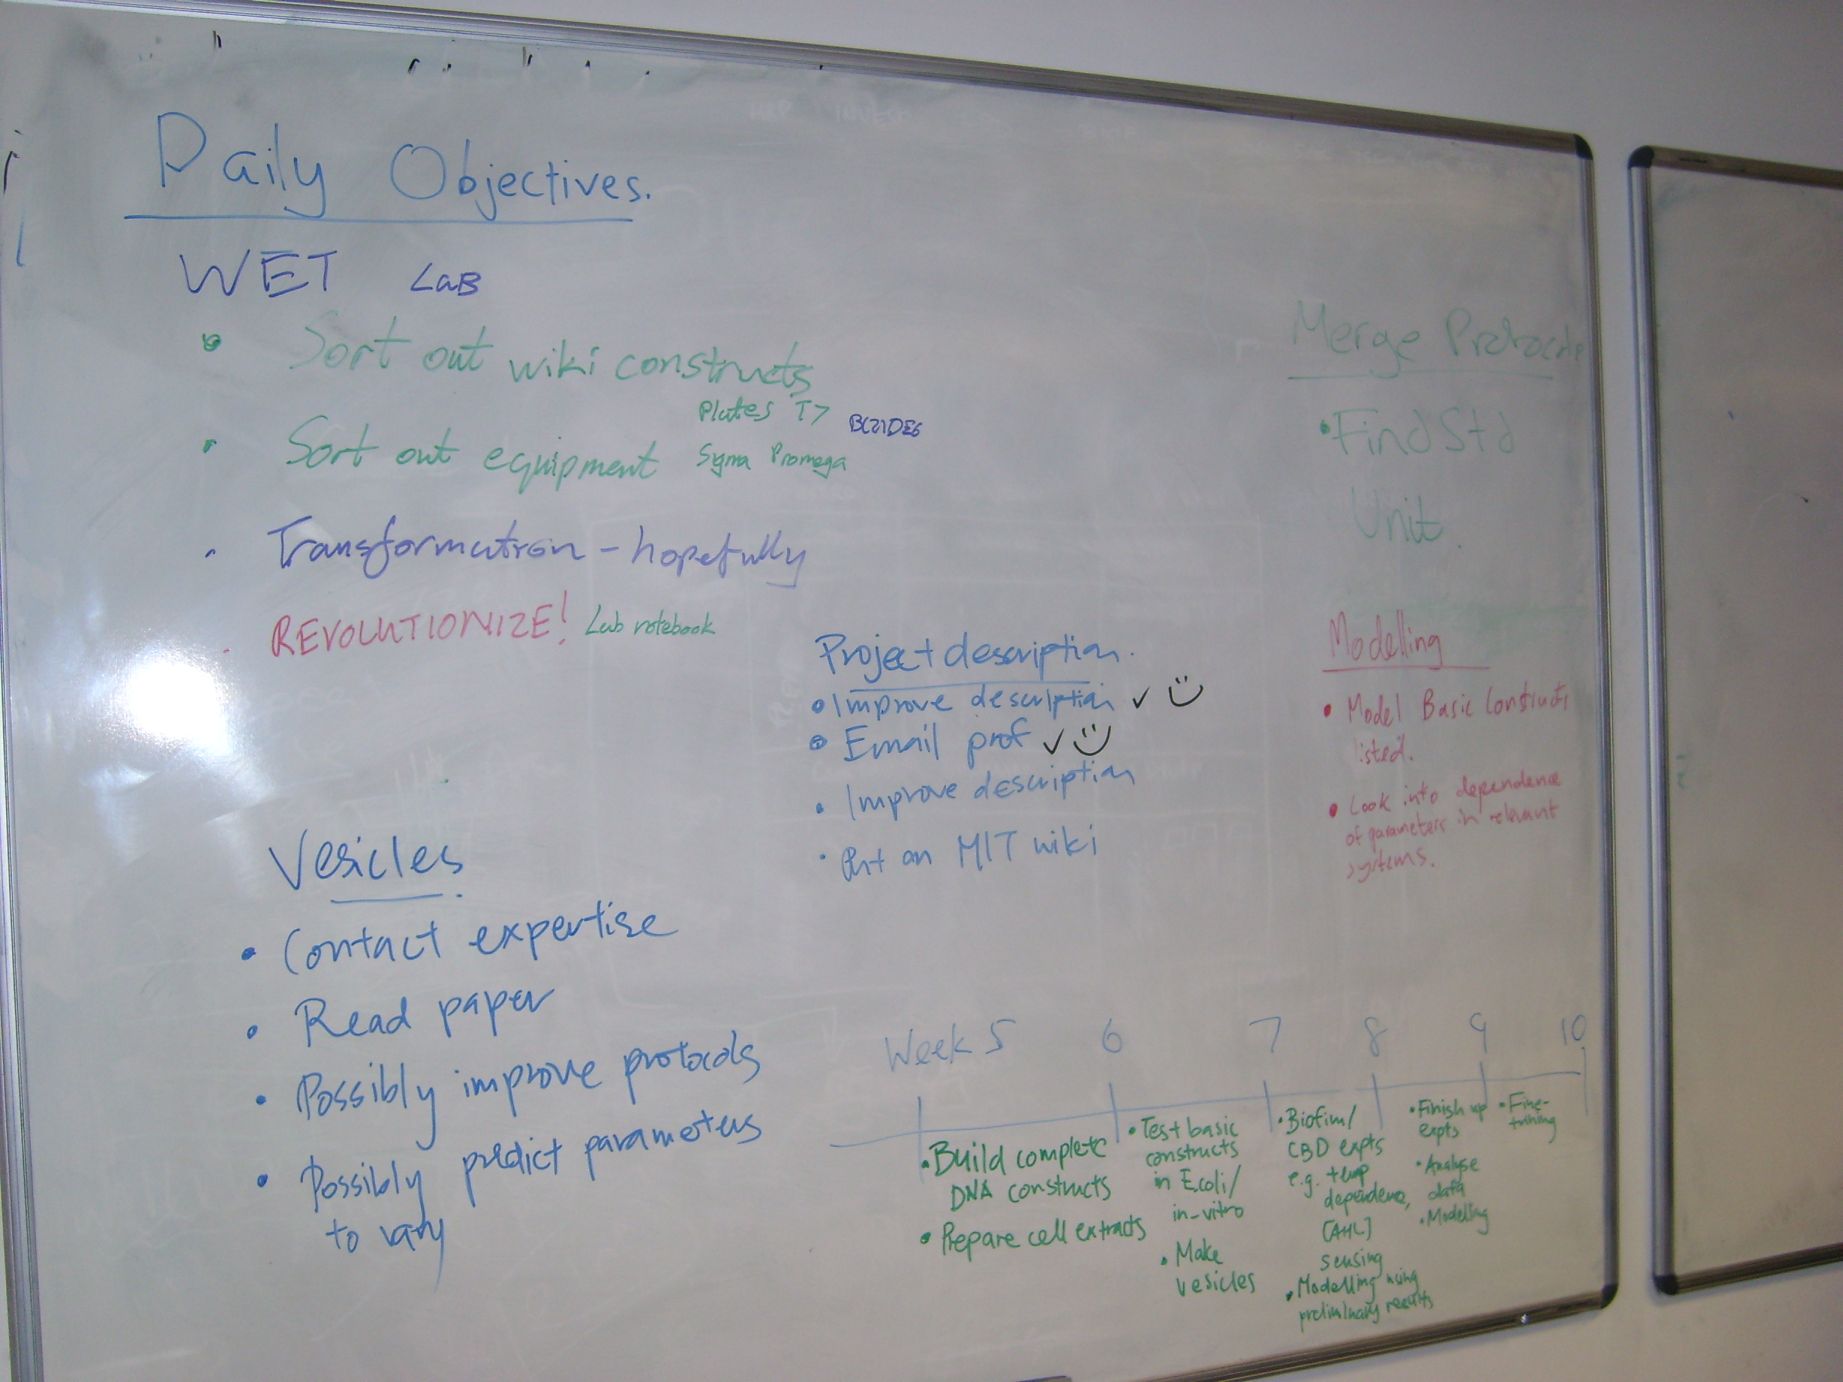 Daily Objectives.
WET LaB
• Sort out wiki constructs
• Sort out equipment
Plates T7
BL21DE6
Sigma Promega
• Transformation - hopefully
• REVOLUTIONIZE! Lab notebook
Vesicles
• Contact expertise
• Read paper
• Possibly improve protocols
• Possibly predict parameters
to vary
Project description.
• Improve description ✓
• Email prof ✓
• Improve description
• Put on MIT wiki
Merge Protocols
• Find Std
Unit.
Modelling
• Model Basic Constructs
listed.
• Look into dependence
of parameters in relevant
systems.
Week 5 6 7 8 9 10
• Build complete
DNA constructs
• Prepare cell extracts
• Test basic
constructs
in E.coli/
in-vitro
• Make
vesicles
• Biofim/
CBD expts
e.g. temp
dependence,
[AHL]
sensing
• Modelling using
preliminary results
• Finish up
expts
• Analyse
data
• Modelling
• Fine-
tuning